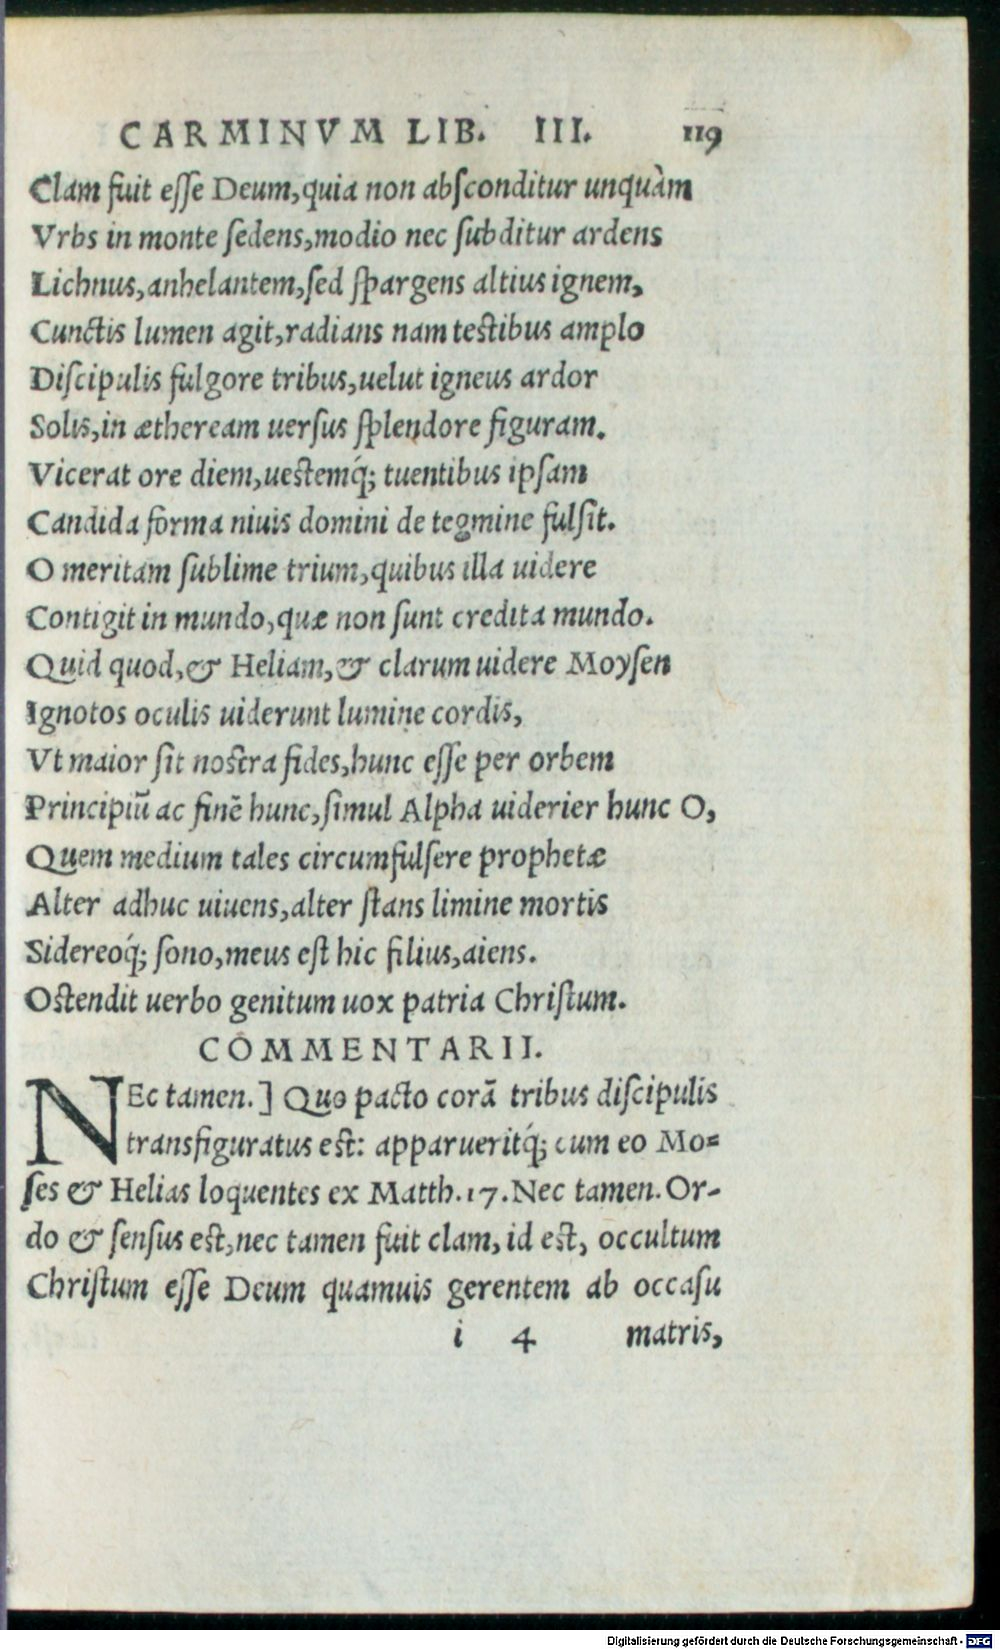 CARMINVM LIB. III. 119
Clam fuit eſſe Deum,quia non abſconditur unquàm
Vrbs in monte ſedens,modio nec ſubditur ardens
Lichnus,anhelantem,ſed ſpargens altius ignem,
Cunctis lumen agit,radians nam teſtibus amplo
Diſcipulis fulgore tribus,uelut igneus ardor
Solis,in ætheream uerſus ſplendore figuram.
Vicerat ore diem,ueſtemq́; tuentibus ipſam
Candida forma niuis domini de tegmine fulſit.
O meritam ſublime trium,quibus illa uidere
Contigit in mundo,quæ non ſunt credita mundo.
Quid quod,& Heliam,& clarum uidere Moyſen
Ignotos oculis uiderunt lumine cordis,
Vt maior ſit noſtra fides,hunc eſſe per orbem
Principiũ ac finẽ hunc,ſimul Alpha uiderier hunc O,
Quem medium tales circumfulſere prophetæ
Alter adhuc uiuens,alter ſtans limine mortis
Sidereoq́; ſono,meus eſt hic filius,aiens.
Oſtendit uerbo genitum uox patria Chriſtum.
COMMENTARII.
NEc tamen.] Quo pacto corã tribus diſcipulis
transfiguratus eſt: apparueritq́; cum eo Mo=
ſes & Helias loquentes ex Matth.17.Nec tamen.Or-
do & ſenſus eſt,nec tamen fuit clam, id eſt, occultum
Chriſtum eſſe Deum quamuis gerentem ab occaſu
i 4 matris,
Digitalisierung gefördert durch die Deutsche Forschungsgemeinschaft - DFG